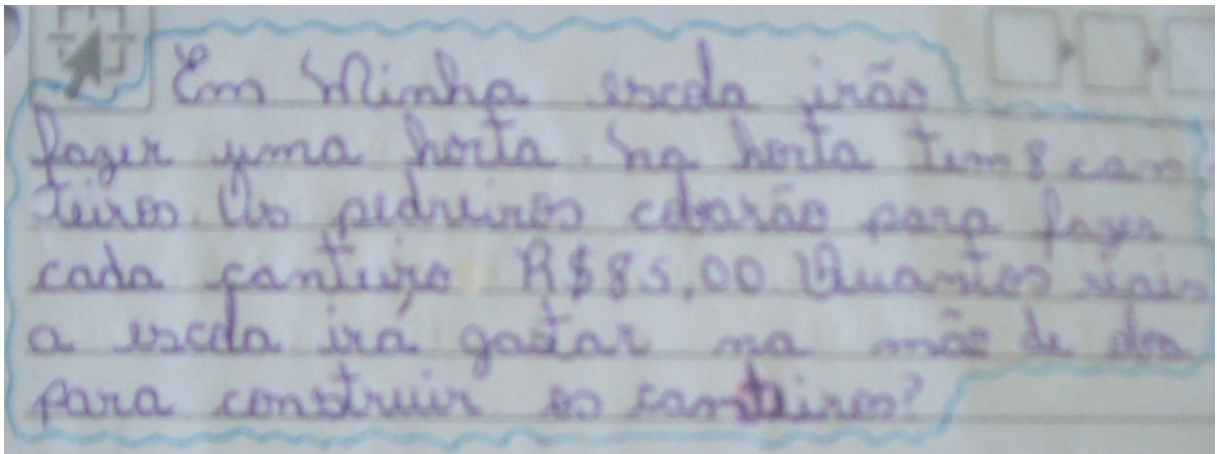 Em Minha escola irão
fazer uma horta. na horta tem 8 can
teiros. Os pedreiros cobarão para fazer
cada canteiro R$85,00. Quantos reais
a escola irá gastar na mão de dos
para construir os canteiros?